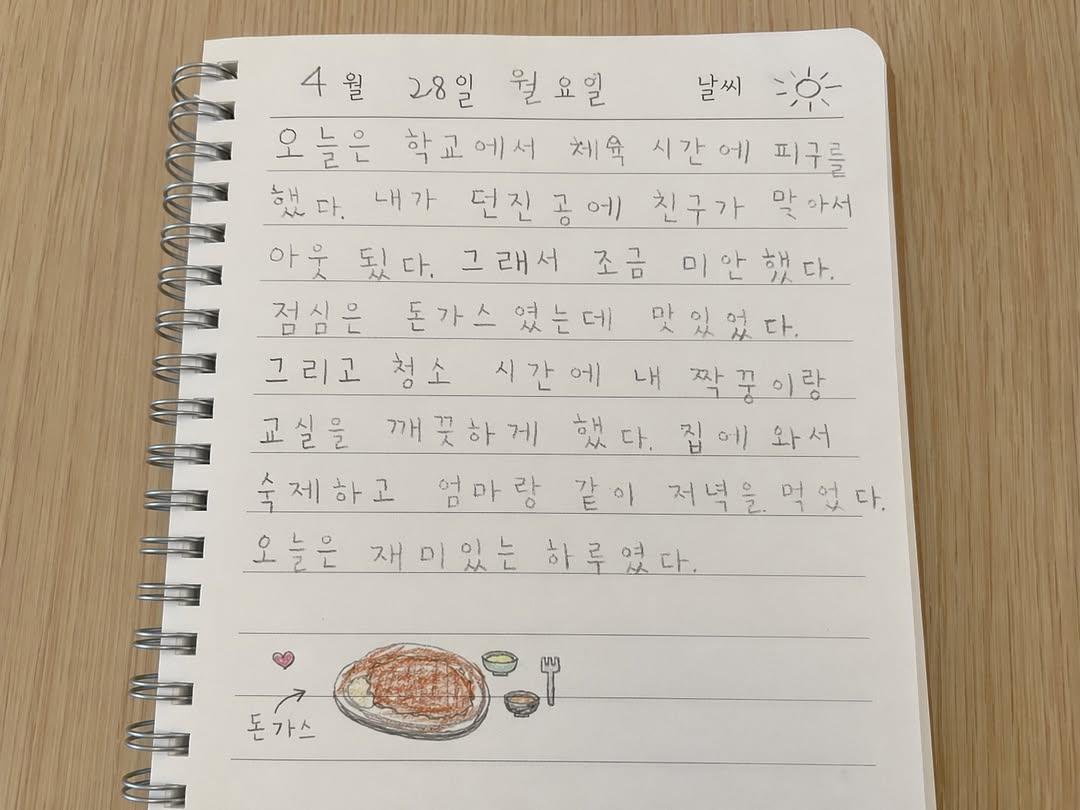 4월 28일 월요일 날씨
오늘은 학교에서 체육 시간에 피구를
했다. 내가 던진 공에 친구가 맞아서
아웃 됬다. 그래서 조금 미안했다.
점심은 돈가스였는데 맛있었다.
그리고 청소 시간에 내 짝꿍이랑
교실을 깨끗하게 했다. 집에 와서
숙제하고 엄마랑 같이 저녁을 먹었다.
오늘은 재미있는 하루였다.
돈가스